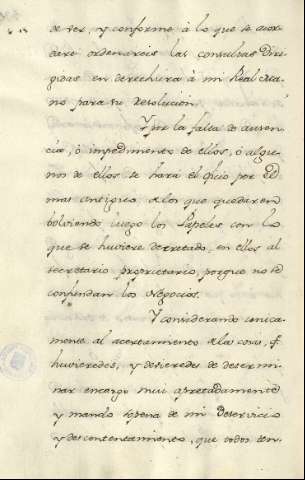 de ver, y conforme à lo que se acor-
dare ordenareis las consultas Diri-
gidas en derechura à mi Real Ma-
no para su resolucion.
Y por la falta de ausen-
cia, ò impedimento de ellos, ò algu-
no de ellos se hará el oficio por el
mas antiguo de los que quedaren
bolviendo luego los Papeles con lo
que se huviere decretado, en ellos al
secretario proprietario, porque no se
confundan los Negocios.
Y considerando unica-
mente al acertamiento de las cosas, q.
huvieredes, y devieredes de determi-
nar encargo mui apretadamente
y mando sopena de mi Deservicio
y descontentamiento, que todos ten-